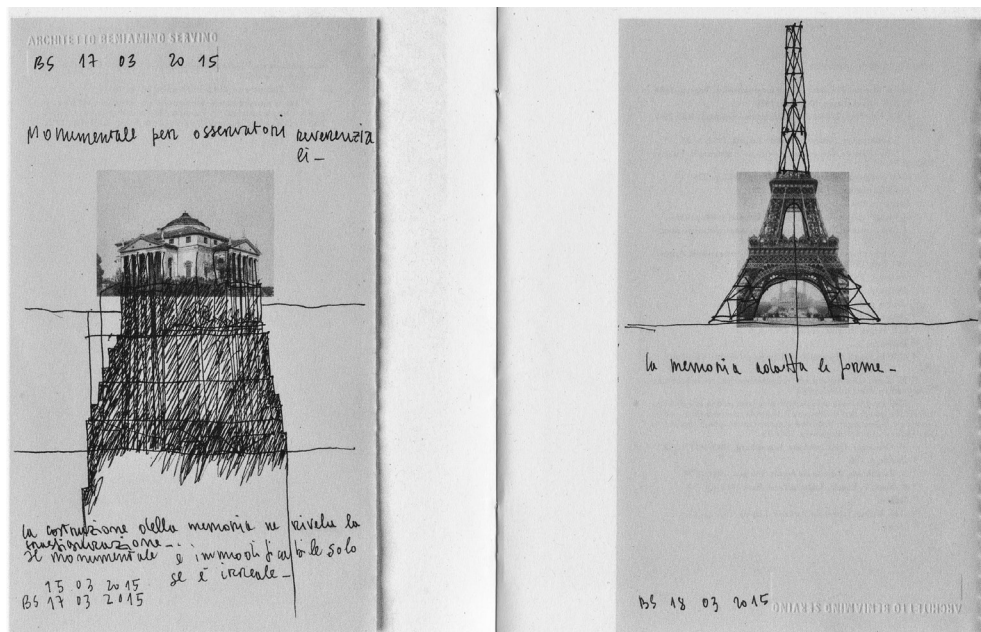 ARCHITETTO BENIAMINO SERVINO
BS 17 03 2015
Monumentale per osservatori reverenzia
li_
La costruzione della memoria ne rivela la
trasfigurazione_
Il monumentale è immodificabile solo
se è irreale_
15 03 2015
BS 17 03 2015
la memoria adatta le forme_
BS 18 03 2015
ARCHITETTO BENIAMINO SERVINO